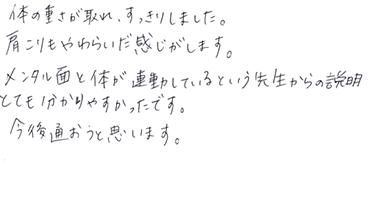 体の重さが取れ、すっきりしました。
肩こりもやわらいだ感じがします。
メンタル面と体が連動しているという先生からの説明
とても分かりやすかったです。
今後通おうと思います。